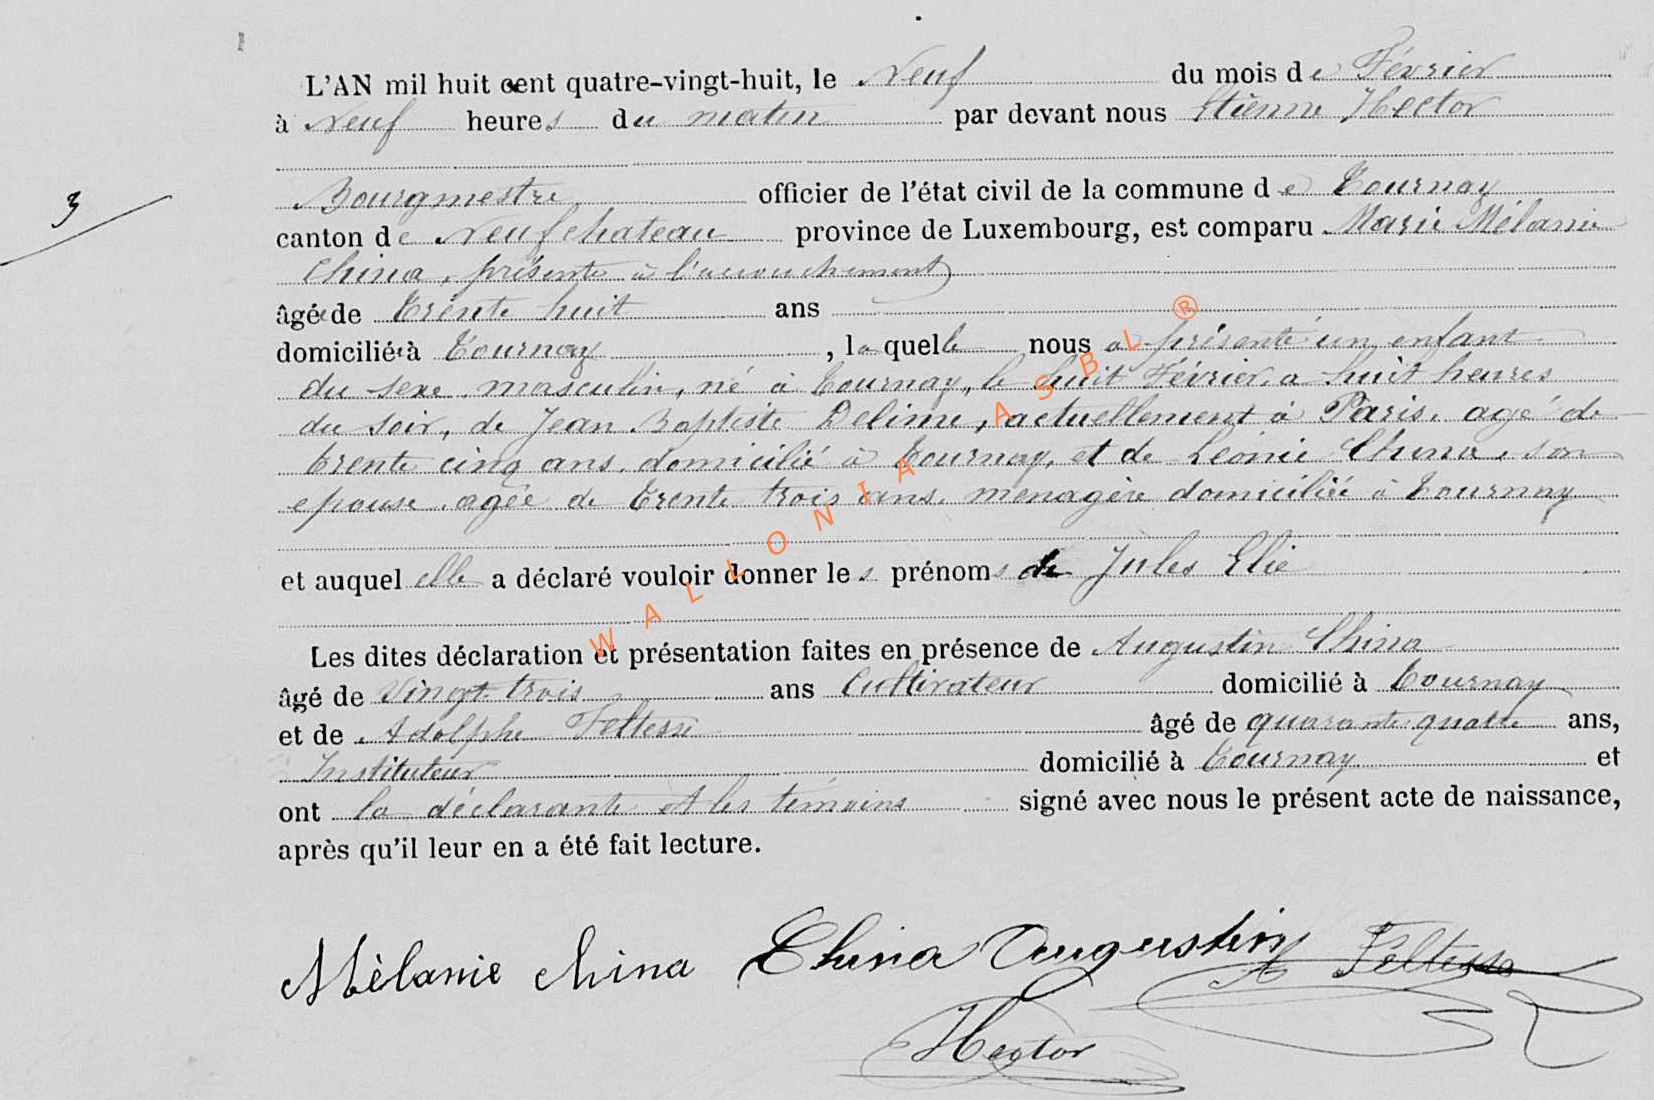 L'AN mil huit cent quatre-vingt-huit, le Neuf du mois de Février
à Neuf heures du matin par devant nous Etienne Hector
Bourgmestre officier de l'état civil de la commune de Tournay
3
canton de Neufchateau province de Luxembourg, est comparu Marie Mélanie
China, présente à l'accouchement
âgée de trente huit ans
domiciliée à Tournay, laquelle nous a présenté un enfant
du sexe masculin, né à Tournay, le huit Février, a huit heures
du soir, de Jean Baptiste Delime, actuellement à Paris, agé de
trente cinq ans, domicilié à Tournay, et de Léonie China, son
epouse, agée de trente trois ans, menagère domiciliée à Tournay
et auquel elle a déclaré vouloir donner les prénoms de Jules Elie
Les dites déclaration et présentation faites en présence de Augustin China
âgé de Vingt trois ans Cultivateur domicilié à Tournay
et de Adolphe Feltesse âgé de quarante quatre ans,
Instituteur domicilié à Tournay et
ont la déclarante et les témoins signé avec nous le présent acte de naissance,
après qu'il leur en a été fait lecture.
Mèlanie China China Augustin Feltesse
Hector
WALLONIA ASBL ®